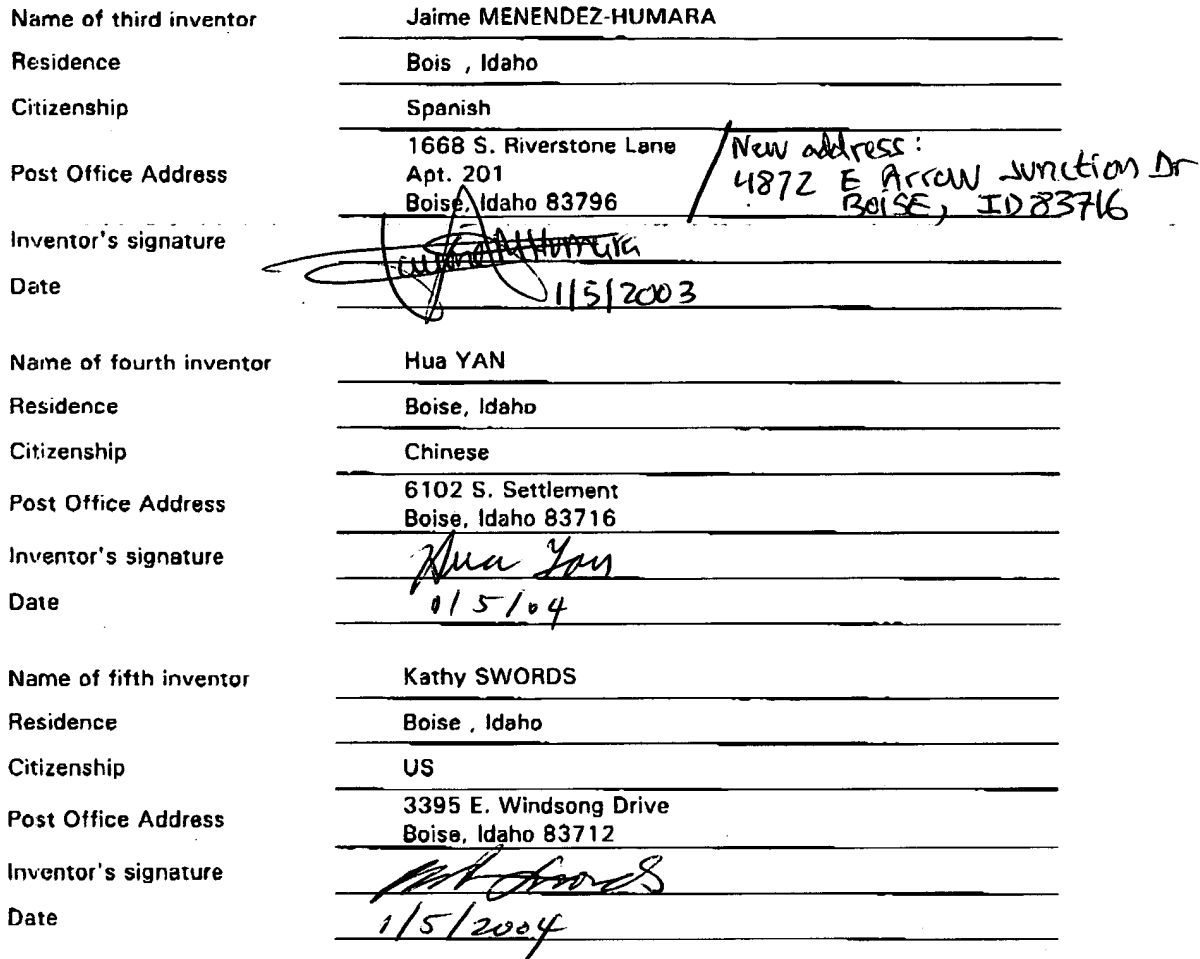 Name of third inventor Jaime MENENDEZ-HUMARA
Residence Bois , Idaho
Citizenship Spanish
Post Office Address 1668 S. Riverstone Lane
Apt. 201
Boise, Idaho 83796
/ New address:
4872 E Arrow Junction Dr
BOISE, ID 83716
Inventor's signature Humara
Date 1/5/2003
Name of fourth inventor Hua YAN
Residence Boise, Idaho
Citizenship Chinese
Post Office Address 6102 S. Settlement
Boise, Idaho 83716
Inventor's signature Hua Yan
Date 1/5/04
Name of fifth inventor Kathy SWORDS
Residence Boise , Idaho
Citizenship US
Post Office Address 3395 E. Windsong Drive
Boise, Idaho 83712
Inventor's signature Swords
Date 1/5/2004